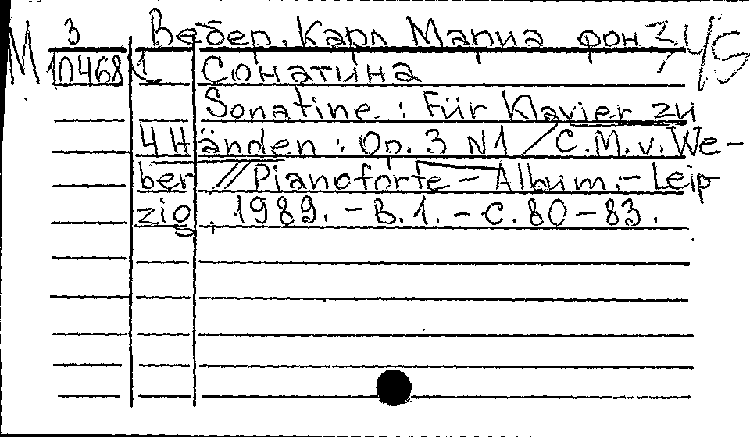 3 Вебер, Карл Мариа фон
М 10468 Сонатина
Sonatine : Für Klavier zu
4 Händen : Op. 3 N1 / C. M. v. We-
ber // Pianoforte - Album. - Leip-
zig, 1989. - B. 1. - C. 80-83.